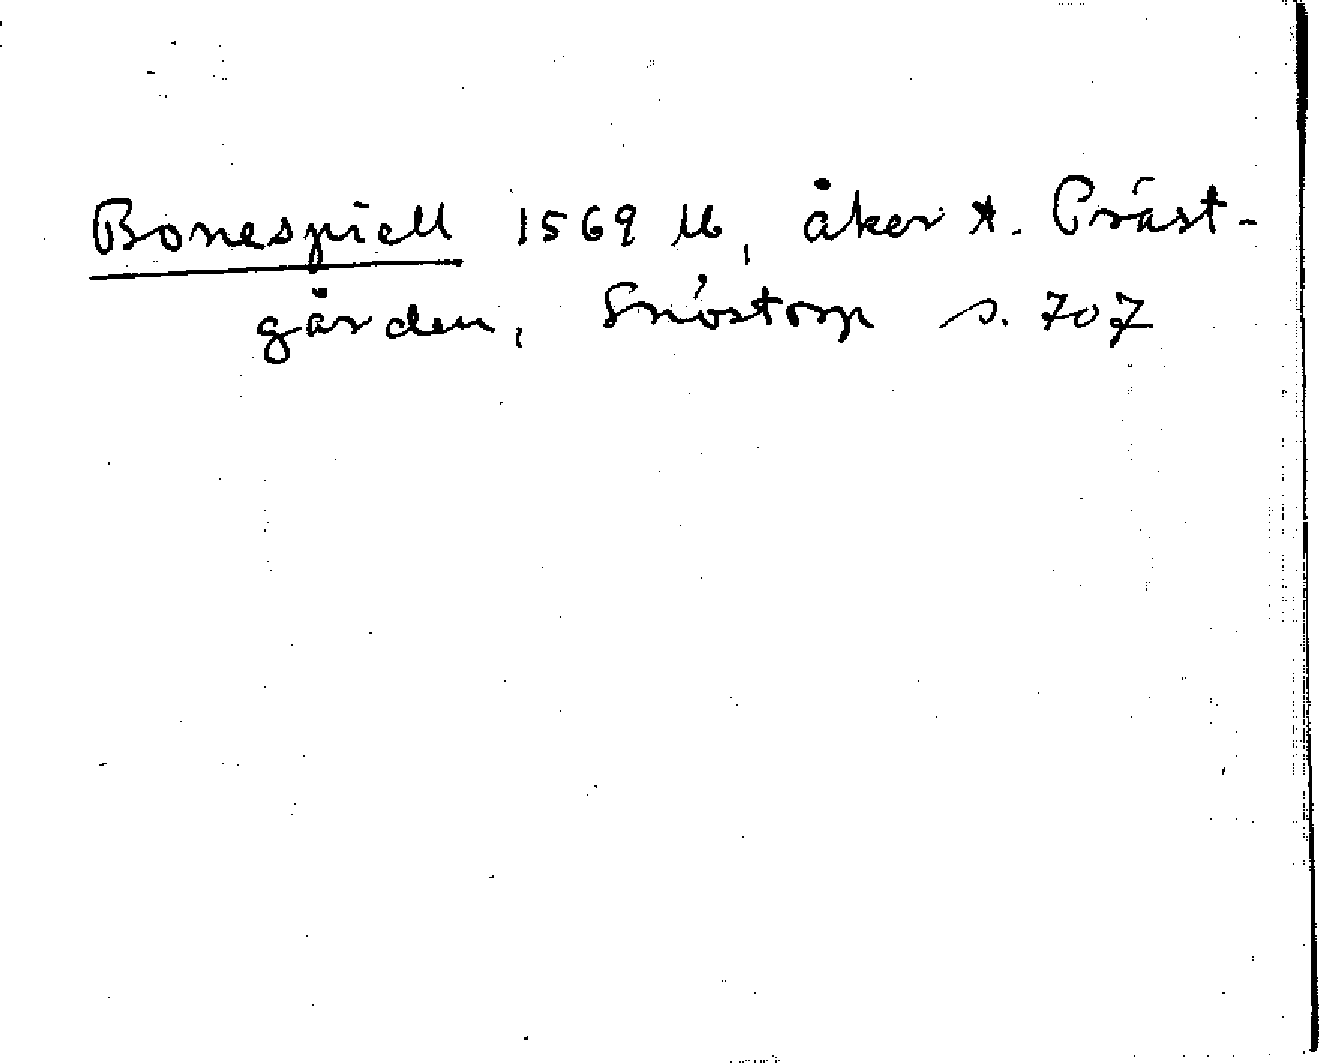 Bonespiell 1569 Lb, åker t. Präst-
gården, Snöstorp s. 707